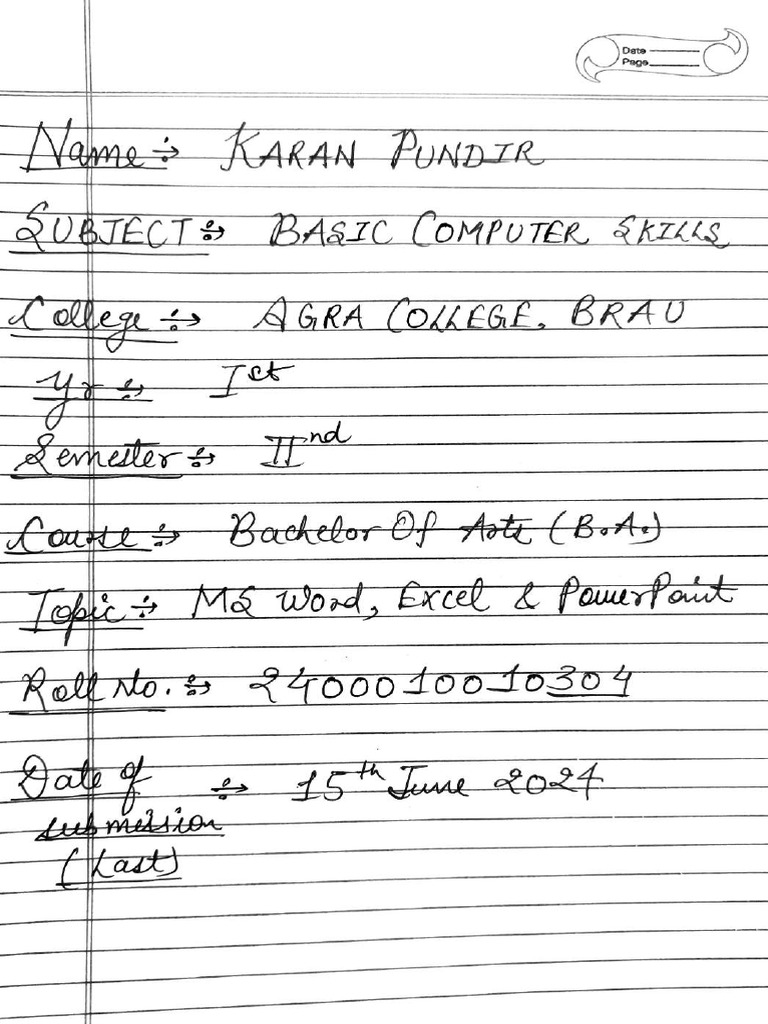 Date
Page
Name ÷→ KARAN PUNDIR
SUBJECT ÷→ BASIC COMPUTER SKILLS
College ÷→ AGRA COLLEGE, BRAU
Yr ÷→ Ist
Semester ÷→ IInd
Course ÷→ Bachelor Of Arts (B.A.)
Topic ÷→ MS Word, Excel & PowerPoint
Roll No. ÷→ 2400010010304
Date of ÷→ 15th June 2024
submission
(Last)